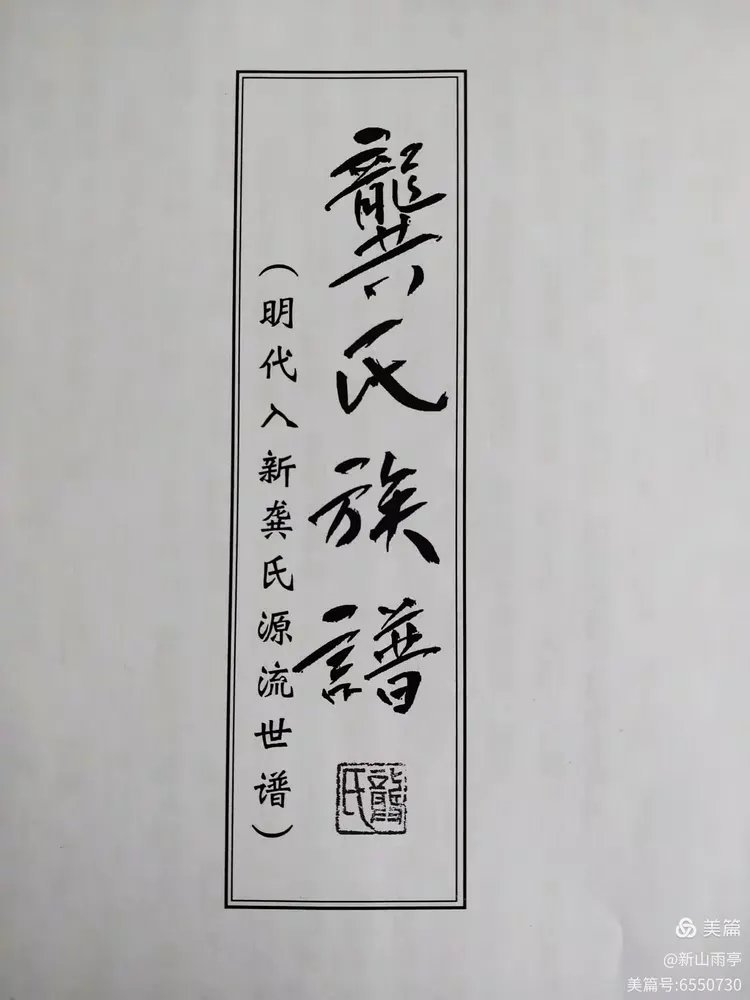 龔氏族譜
(明代入新龚氏源流世谱)
龔氏
美篇
@新山雨亭
美篇号:6550730